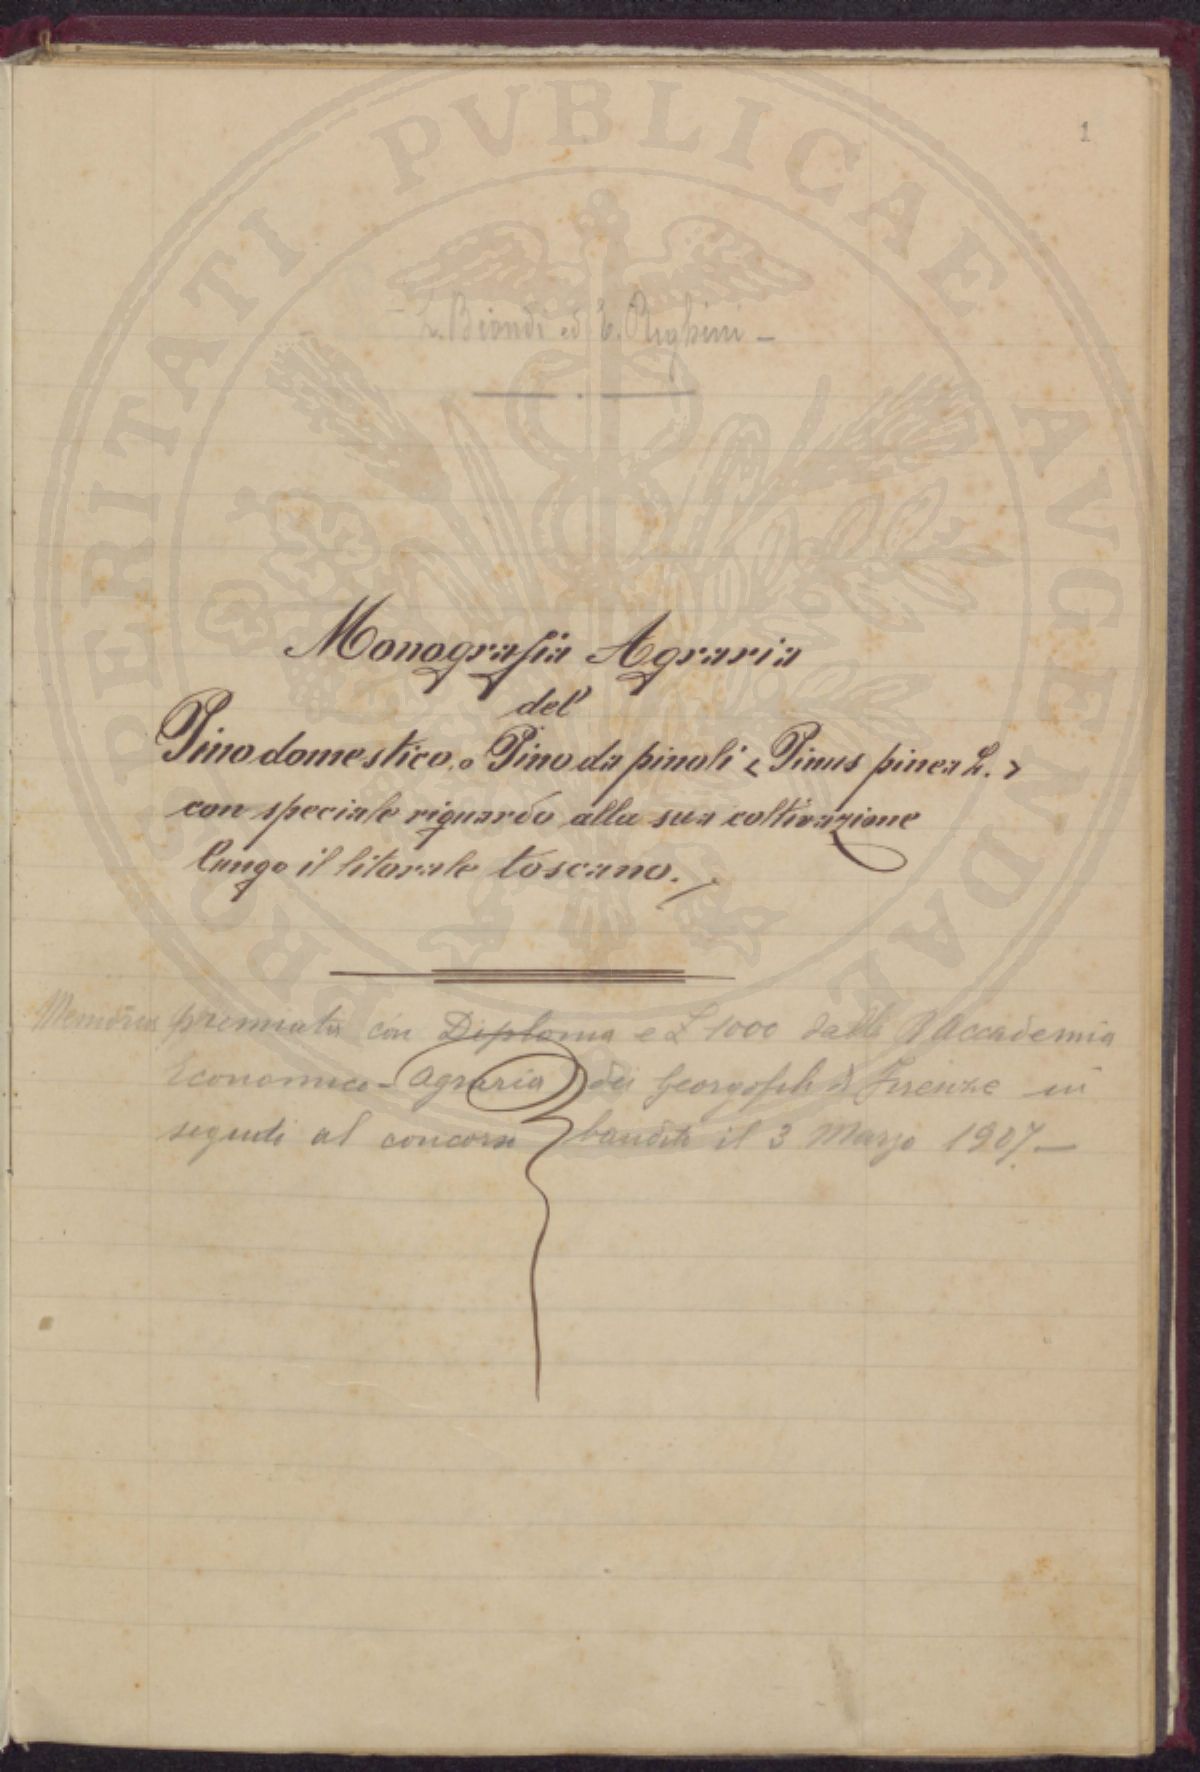 1
– L. Biondi ed E. Righini –
Monografia Agraria
del
Pino domestico, o Pino da pinoli <Pinus pinea L.>
con speciale riguardo alla sua coltivazione
lungo il litorale toscano.
Memoria premiata con Diploma e £ 1000 dalla R. Accademia
Economico-Agraria dei Georgofili di Firenze in
seguito al concorso bandito il 3 Marzo 1907. –
PROSPERITATI PVBLICAE AVGENDAE